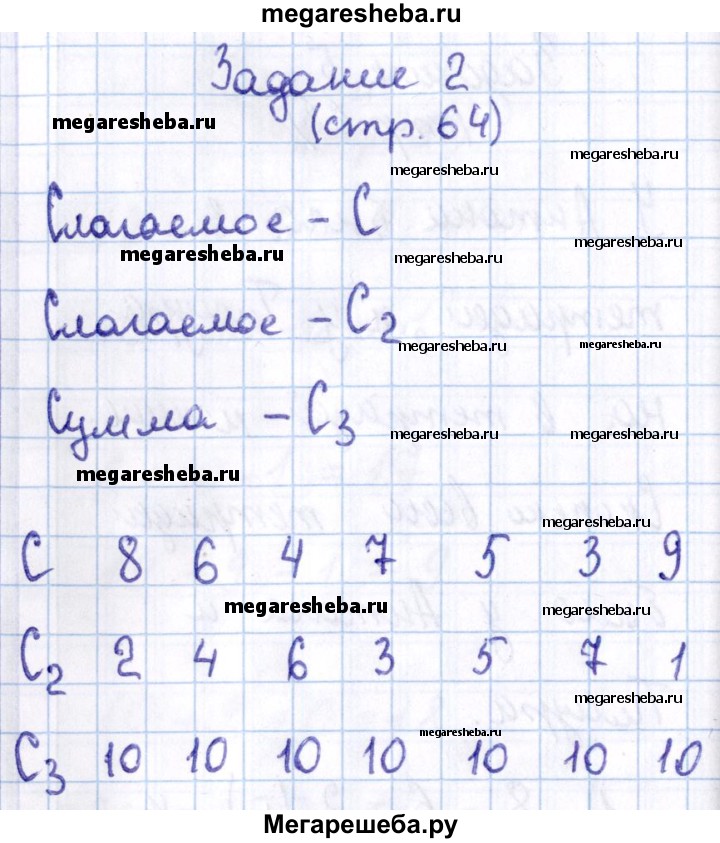 megaresheba.ru
Задание 2
megaresheba.ru
(стр. 64)
megaresheba.ru
megaresheba.ru
Слагаемое - С
megaresheba.ru
megaresheba.ru
megaresheba.ru
Слагаемое - С2
megaresheba.ru
megaresheba.ru
Сумма - С3
megaresheba.ru
megaresheba.ru
megaresheba.ru
megaresheba.ru
С 8 6 4 7 5 3 9
megaresheba.ru
megaresheba.ru
С2 2 4 6 3 5 7 1
megaresheba.ru
megaresheba.ru
С3 10 10 10 10 10 10 10
Мегарешеба.ру